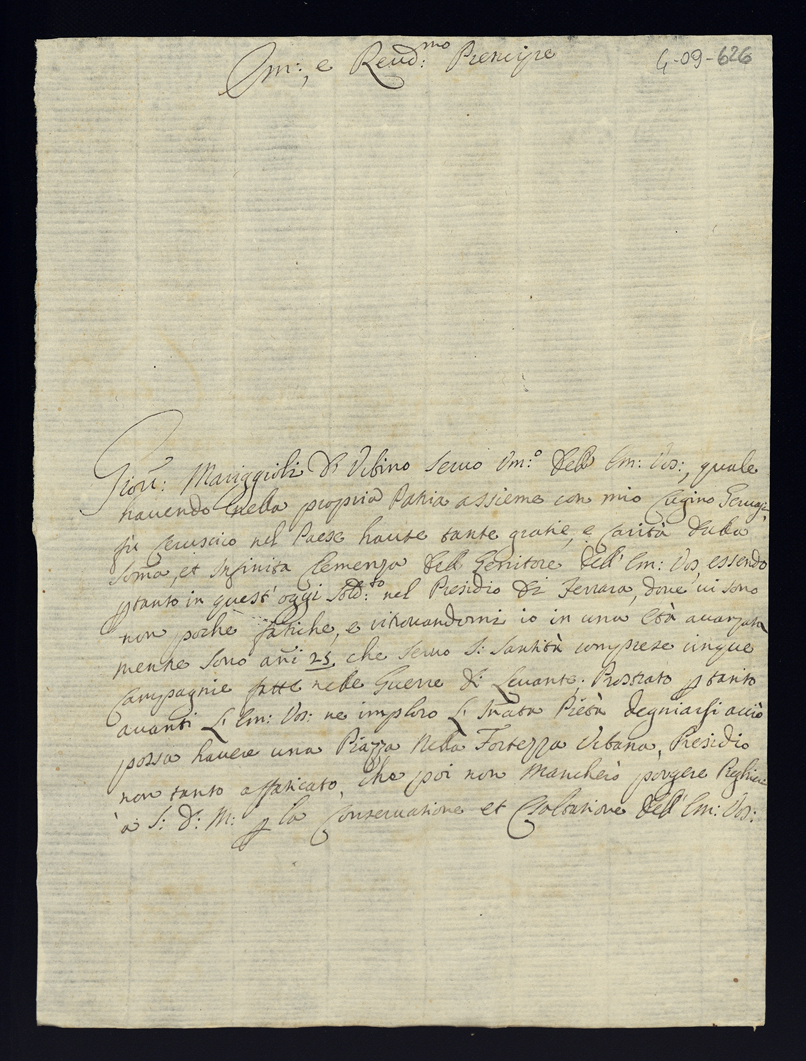 Em:, e Revd:mo Prencipe
4-09-626
Giov: Mariggioli Di Vrbino seruo Vm:o dell' Em: Vos:, quale
hauendo nella propria Patria assieme con mio Cugino
fù Ceruscio nel Paese hauute tante gratie, e carità dalla
soma, et Infinita Clemenza dell Genitore dell' Em: Vos essendo
ptanto in quest' oggi sold:to nel Presidio di Ferrara, doue ui sono
non poche fatiche, e ritrouandomi io in una Età auanzata
mentre sono añi 25 che seruo S: Santità comprese cinque
Campagnie fatte nelle Guerre di Leuante; Prostrato p tanto
auanti L' Em: Vos: ne imploro L' Inata Pietà degniarsi acciò
possa hauere una Piazza Nella Fortezza Vrbana, Presidio
non tanto affaticato, che poi non mancherò porgere Preghiere
à S: D: M: p la Conseruatione et Esaltatione dell' Em: Vos: